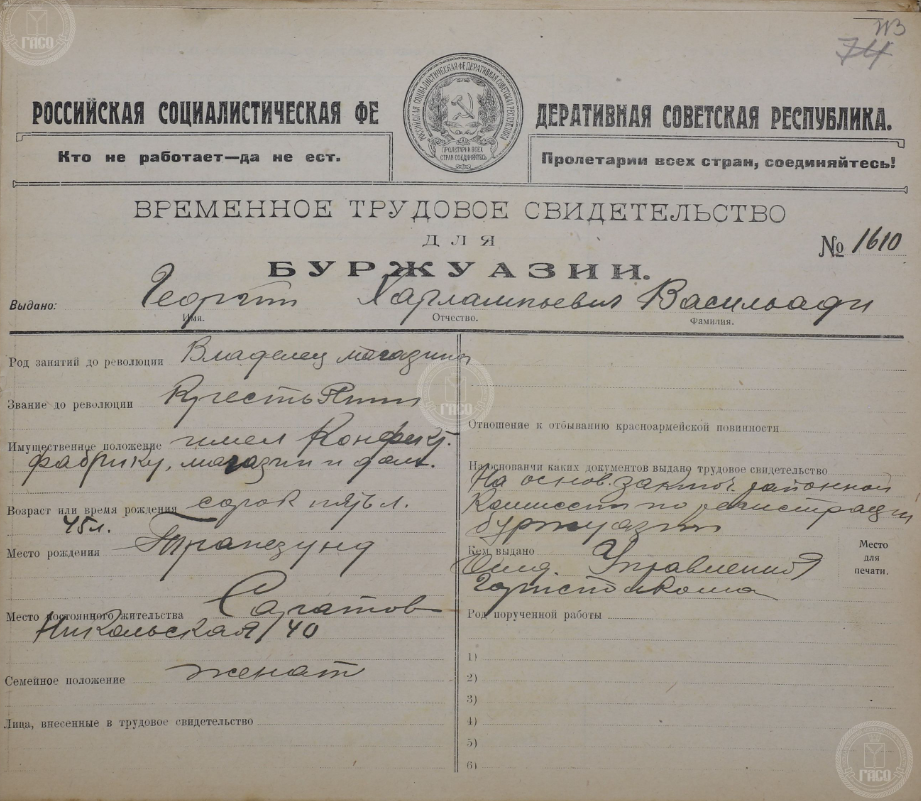 ГАСО
113
74
РОССИЙСКАЯ СОЦИАЛИСТИЧЕСКАЯ ФЕДЕРАТИВНАЯ СОВЕТСКАЯ РЕСПУБЛИКА.
РОССИЙСКАЯ СОЦИАЛИСТИЧЕСКАЯ ФЕДЕРАТИВНАЯ СОВЕТСКАЯ РЕСПУБЛИКА
ПРОЛЕТАРИИ ВСЕХ
СТРАН СОЕДИНЯЙТЕСЬ
Кто не работает—да не ест.
Пролетарии всех стран, соединяйтесь!
ВРЕМЕННОЕ ТРУДОВОЕ СВИДЕТЕЛЬСТВО
ДЛЯ
БУРЖУАЗИИ.
№ 1610
Выдано: Георгий Харлампьевич Васильади
Имя. Отчество. Фамилия.
Род занятий до революции Владелец магазина
Звание до революции
Имущественное положение имел Конфек.
фабрику, магазин и дом.
Возраст или время рождения сорок пять л.
45 л.
Место рождения Трапезунд
Место постоянного жительства Саратов
Никольская, 40
Семейное положение женат
Лица, внесенные в трудовое свидетельство
ГАСО
Отношение к отбыванию красноармейской повинности
На основании каких документов выдано трудовое свидетельство
На основ. заключ. районной
Комиссии по регистрации
буржуазии
Кем выдано
Отд. Управления
Горисполкома
Место
для
печати.
Род порученной работы
1)
2)
3)
4)
5)
6)
ГАСО